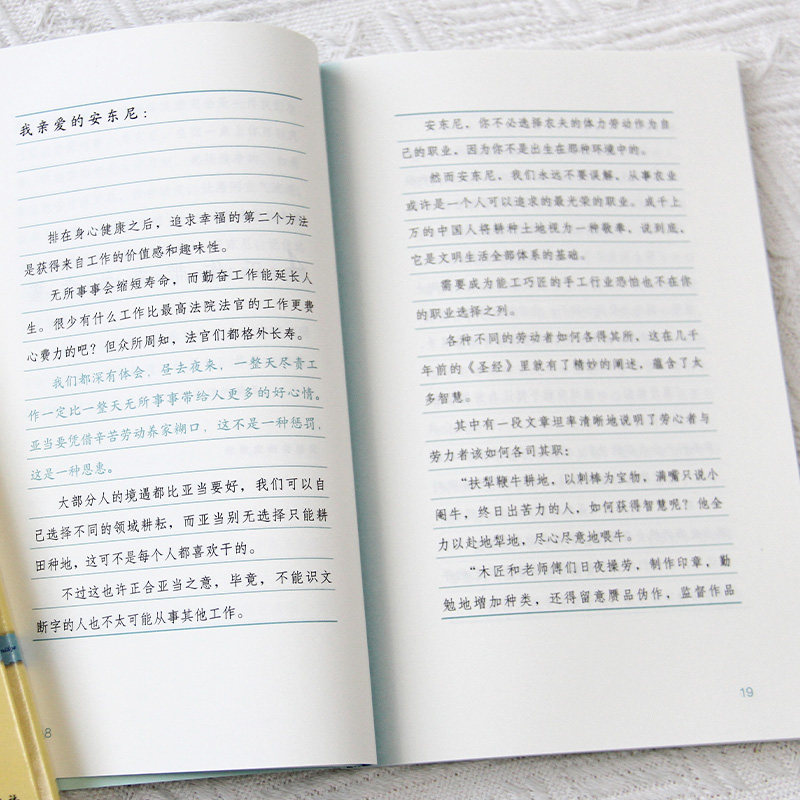 我亲爱的安东尼：
排在身心健康之后，追求幸福的第二个方法
是获得来自工作的价值感和趣味性。
无所事事会缩短寿命，而勤奋工作能延长人
生。很少有什么工作比最高法院法官的工作更费
心费力的吧？但众所周知，法官们都格外长寿。
我们都深有体会，昼去夜来，一整天尽责工
作一定比一整天无所事事带给人更多的好心情。
亚当要凭借辛苦劳动养家糊口，这不是一种惩罚，
这是一种恩惠。
大部分人的境遇都比亚当要好，我们可以自
己选择不同的领域耕耘，而亚当别无选择只能耕
田种地，这可不是每个人都喜欢干的。
不过这也许正合亚当之意，毕竟，不能识文
断字的人也不太可能从事其他工作。
8
安东尼，你不必选择农夫的体力劳动作为自
己的职业，因为你不是出生在那种环境中的。
然而安东尼，我们永远不要误解，从事农业
或许是一个人可以追求的最光荣的职业。成千上
万的中国人将耕种土地视为一种敬奉，说到底，
它是文明生活全部体系的基础。
需要成为能工巧匠的手工行业恐怕也不在你
的职业选择之列。
各种不同的劳动者如何各得其所，这在几千
年前的《圣经》里就有了精妙的阐述，蕴含了太
多智慧。
其中有一段文章坦率清晰地说明了劳心者与
劳力者该如何各司其职：
“扶犁鞭牛耕地，以刺棒为宝物，满嘴只说小
阉牛，终日出苦力的人，如何获得智慧呢？他全
力以赴地犁地，尽心尽意地喂牛。
“木匠和老师傅们日夜操劳，制作印章，勤
勉地增加种类，还得留意赝品伪作，监督作品
19